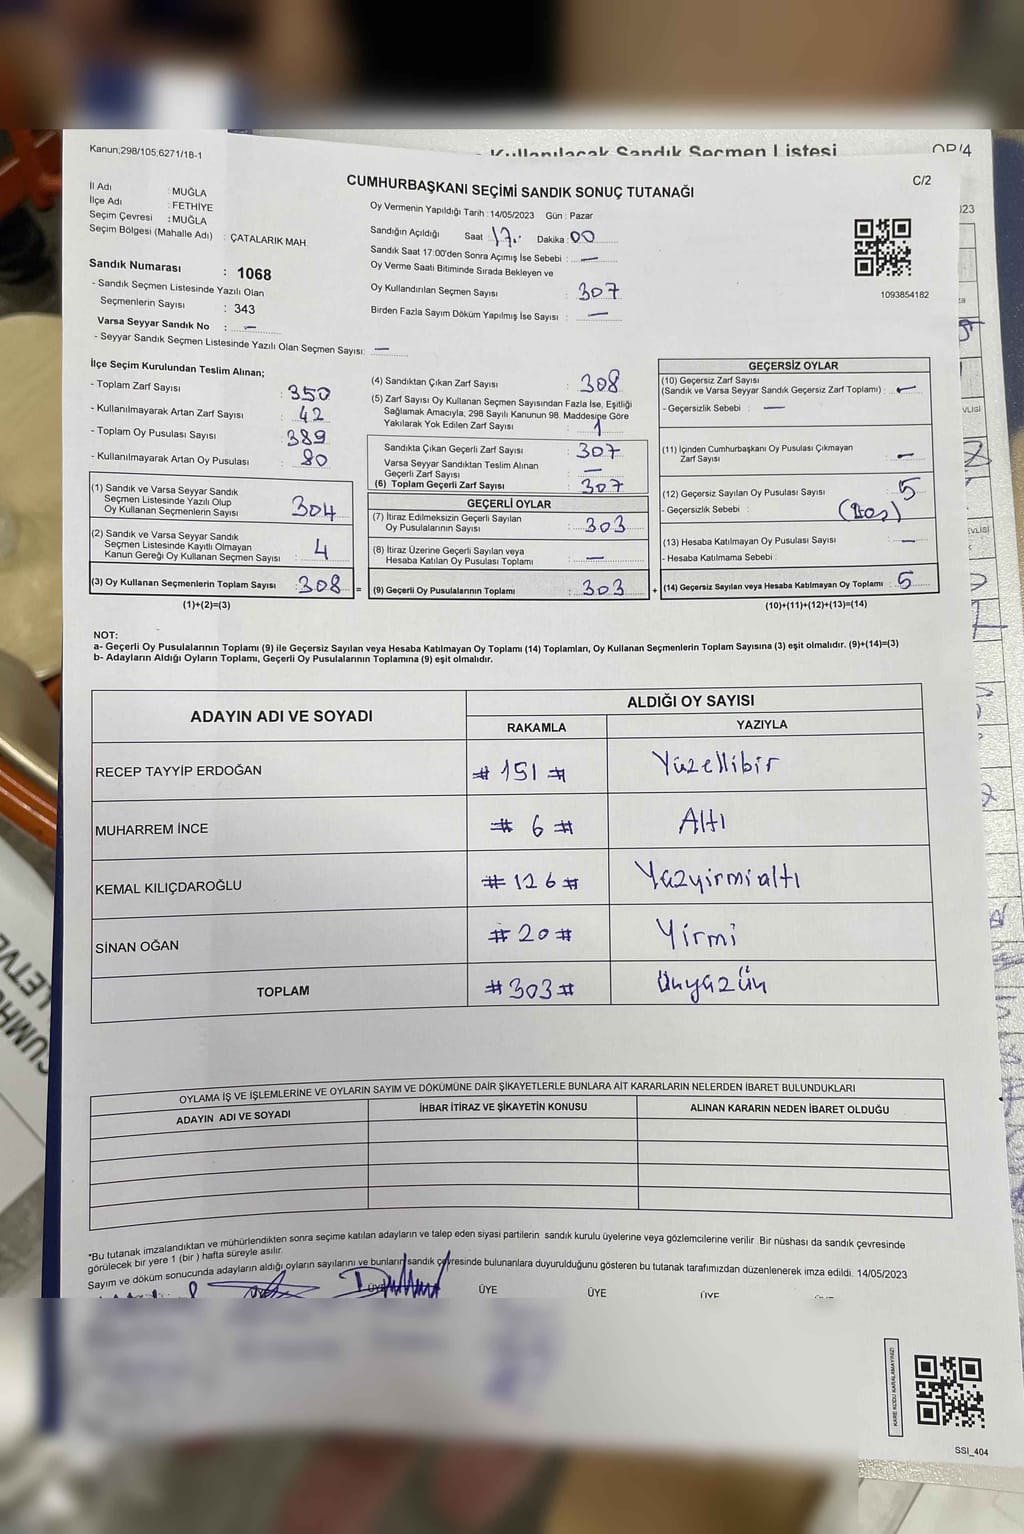 Kullanılacak Sandık Seçmen Listesi
Kanun;298/105;6271/18-1
C/2
CUMHURBAŞKANI SEÇİMİ SANDIK SONUÇ TUTANAĞI
İl Adı : MUĞLA
İlçe Adı : FETHİYE
Seçim Çevresi : MUĞLA
Seçim Bölgesi (Mahalle Adı) : ÇATALARIK MAH.
Sandık Numarası : 1068
- Sandık Seçmen Listesinde Yazılı Olan
Seçmenlerin Sayısı : 343
Varsa Seyyar Sandık No : —
- Seyyar Sandık Seçmen Listesinde Yazılı Olan Seçmen Sayısı: —
Oy Vermenin Yapıldığı Tarih : 14/05/2023 Gün : Pazar
Sandığın Açıldığı Saat : 17 Dakika : 00
Sandık Saat 17:00'den Sonra Açımış İse Sebebi : —
Oy Verme Saati Bitiminde Sırada Bekleyen ve
Oy Kullandırılan Seçmen Sayısı : 307
Birden Fazla Sayım Döküm Yapılmış İse Sayısı : —
1093854182
İlçe Seçim Kurulundan Teslim Alınan;
- Toplam Zarf Sayısı : 350
- Kullanılmayarak Artan Zarf Sayısı : 42
- Toplam Oy Pusulası Sayısı : 389
- Kullanılmayarak Artan Oy Pusulası : 80
(1) Sandık ve Varsa Seyyar Sandık
Seçmen Listesinde Yazılı Olup
Oy Kullanan Seçmenlerin Sayısı : 304
(2) Sandık ve Varsa Seyyar Sandık
Seçmen Listesinde Kayıtlı Olmayan
Kanun Gereği Oy Kullanan Seçmen Sayısı : 4
(3) Oy Kullanan Seçmenlerin Toplam Sayısı : 308
(1)+(2)=(3)
(4) Sandıktan Çıkan Zarf Sayısı : 308
(5) Zarf Sayısı Oy Kullanan Seçmen Sayısından Fazla İse, Eşitliği
Sağlamak Amacıyla, 298 Sayılı Kanunun 98. Maddesine Göre
Yakılarak Yok Edilen Zarf Sayısı : 1
Sandıkta Çıkan Geçerli Zarf Sayısı : 307
Varsa Seyyar Sandıktan Teslim Alınan
Geçerli Zarf Sayısı : —
(6) Toplam Geçerli Zarf Sayısı : 307
GEÇERLİ OYLAR
(7) İtiraz Edilmeksizin Geçerli Sayılan
Oy Pusulalarının Sayısı : 303
(8) İtiraz Üzerine Geçerli Sayılan veya
Hesaba Katılan Oy Pusulası Toplamı : —
= (9) Geçerli Oy Pusulalarının Toplamı : 303
GEÇERSİZ OYLAR
(10) Geçersiz Zarf Sayısı
(Sandık ve Varsa Seyyar Sandık Geçersiz Zarf Toplamı) : —
- Geçersizlik Sebebi : —
(11) İçinden Cumhurbaşkanı Oy Pusulası Çıkmayan
Zarf Sayısı : —
(12) Geçersiz Sayılan Oy Pusulası Sayısı : 5
- Geçersizlik Sebebi :
(13) Hesaba Katılmayan Oy Pusulası Sayısı : —
- Hesaba Katılmama Sebebi :
+ (14) Geçersiz Sayılan veya Hesaba Katılmayan Oy Toplamı : 5
(10)+(11)+(12)+(13)=(14)
NOT:
a- Geçerli Oy Pusulalarının Toplamı (9) ile Geçersiz Sayılan veya Hesaba Katılmayan Oy Toplamı (14) Toplamları, Oy Kullanan Seçmenlerin Toplam Sayısına (3) eşit olmalıdır. (9)+(14)=(3)
b- Adayların Aldığı Oyların Toplamı, Geçerli Oy Pusulalarının Toplamına (9) eşit olmalıdır.
ADAYIN ADI VE SOYADI
ALDIĞI OY SAYISI
RAKAMLA YAZIYLA
RECEP TAYYİP ERDOĞAN # 151 # Yüzellibir
MUHARREM İNCE # 6 # Altı
KEMAL KILIÇDAROĞLU # 126 # Yüzyirmialtı
SİNAN OĞAN # 20 # Yirmi
TOPLAM # 303 # Üçyüzüç
OYLAMA İŞ VE İŞLEMLERİNE VE OYLARIN SAYIM VE DÖKÜMÜNE DAİR ŞİKAYETLERLE BUNLARA AİT KARARLARIN NELERDEN İBARET BULUNDUKLARI
ADAYIN ADI VE SOYADI İHBAR İTİRAZ VE ŞİKAYETİN KONUSU ALINAN KARARIN NEDEN İBARET OLDUĞU
*Bu tutanak imzalandıktan ve mühürlendikten sonra seçime katılan adayların ve talep eden siyasi partilerin sandık kurulu üyelerine veya gözlemcilerine verilir. Bir nüshası da sandık çevresinde
görülecek bir yere 1 (bir ) hafta süreyle asılır.
Sayım ve döküm sonucunda adayların aldığı oyların sayılarını ve bunların sandık çevresinde bulunanlara duyurulduğunu gösteren bu tutanak tarafımızdan düzenlenerek imza edildi. 14/05/2023
ÜYE ÜYE ÜYE ÜYE
KARE KODU KARALAMAYINIZ!
SSI_404